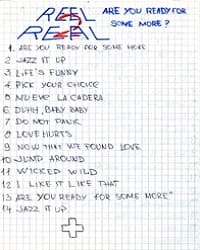 REEL 2 REAL
ARE YOU READY FOR
SOME MORE?
1. ARE YOU READY FOR SOME MORE
2 JAZZ IT UP
3 LIFE'S FUNNY
4 PICK YOUR CHOICE
5 MUEVE LA CADERA
6 OUHH, BABY BABY
7 DO NOT PANIC
8 LOVE HURTS
9 NOW THAT WE FOUND LOVE
10 JUMP AROUND
11 WICKED WILD
12 I LIKE IT LIKE THAT
13 ARE YOU READY FOR SOME MORE"
14 JAZZ IT UP